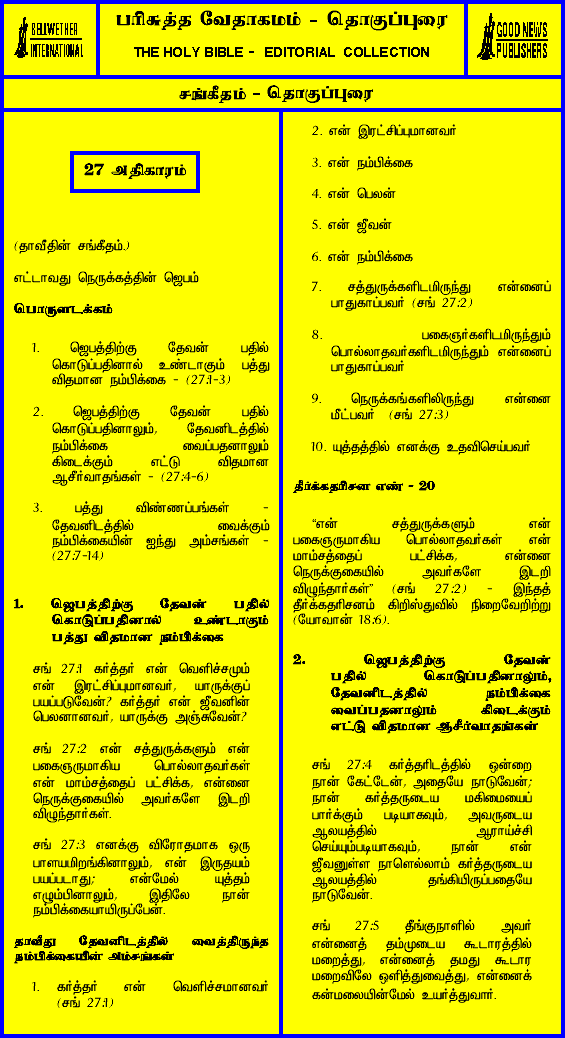 BELLWETHER
INTERNATIONAL
பரிசுத்த வேதாகமம் - தொகுப்புரை
THE HOLY BIBLE - EDITORIAL COLLECTION
GOOD NEWS
PUBLISHERS
சங்கீதம் - தொகுப்புரை
27 அதிகாரம்
(தாவீதின் சங்கீதம்.)
எட்டாவது நெருக்கத்தின் ஜெபம்
பொருளடக்கம்
1. ஜெபத்திற்கு தேவன் பதில்
கொடுப்பதினால் உண்டாகும் பத்து
விதமான நம்பிக்கை - (27:1-3)
2. ஜெபத்திற்கு தேவன் பதில்
கொடுப்பதினாலும், தேவனிடத்தில்
நம்பிக்கை வைப்பதனாலும்
கிடைக்கும் எட்டு விதமான
ஆசீர்வாதங்கள் - (27:4-6)
3. பத்து விண்ணப்பங்கள் -
தேவனிடத்தில் வைக்கும்
நம்பிக்கையின் ஐந்து அம்சங்கள் -
(27:7-14)
1. ஜெபத்திற்கு தேவன் பதில்
கொடுப்பதினால் உண்டாகும்
பத்து விதமான நம்பிக்கை
சங் 27:1 கர்த்தர் என் வெளிச்சமும்
என் இரட்சிப்புமானவர், யாருக்குப்
பயப்படுவேன்? கர்த்தர் என் ஜீவனின்
பெலனானவர், யாருக்கு அஞ்சுவேன்?
சங் 27:2 என் சத்துருக்களும் என்
பகைஞருமாகிய பொல்லாதவர்கள்
என் மாம்சத்தைப் பட்சிக்க, என்னை
நெருக்குகையில் அவர்களே இடறி
விழுந்தார்கள்.
சங் 27:3 எனக்கு விரோதமாக ஒரு
பாளயமிறங்கினாலும், என் இருதயம்
பயப்படாது; என்மேல் யுத்தம்
எழும்பினாலும், இதிலே நான்
நம்பிக்கையாயிருப்பேன்.
தாவீது தேவனிடத்தில் வைத்திருந்த
நம்பிக்கையின் அம்சங்கள்
1. கர்த்தர் என் வெளிச்சமானவர்
(சங் 27:1)
2. என் இரட்சிப்புமானவர்
3. என் நம்பிக்கை
4. என் பெலன்
5. என் ஜீவன்
6. என் நம்பிக்கை
7. சத்துருக்களிடமிருந்து என்னைப்
பாதுகாப்பவர் (சங் 27:2)
8. பகைஞர்களிடமிருந்தும்
பொல்லாதவர்களிடமிருந்தும் என்னைப்
பாதுகாப்பவர்
9. நெருக்கங்களிலிருந்து என்னை
மீட்பவர் (சங் 27:3)
10. யுத்தத்தில் எனக்கு உதவிசெய்பவர்
தீர்க்கதரிசன எண் - 20
“என் சத்துருக்களும் என்
பகைஞருமாகிய பொல்லாதவர்கள் என்
மாம்சத்தைப் பட்சிக்க, என்னை
நெருக்குகையில் அவர்களே இடறி
விழுந்தார்கள்” (சங் 27:2) - இந்தத்
தீர்க்கதரிசனம் கிறிஸ்துவில் நிறைவேறிற்று
(யோவான் 18:6).
2. ஜெபத்திற்கு தேவன்
பதில் கொடுப்பதினாலும்,
தேவனிடத்தில் நம்பிக்கை
வைப்பதனாலும் கிடைக்கும்
எட்டு விதமான ஆசீர்வாதங்கள்
சங் 27:4 கர்த்தரிடத்தில் ஒன்றை
நான் கேட்டேன், அதையே நாடுவேன்;
நான் கர்த்தருடைய மகிமையைப்
பார்க்கும் படியாகவும், அவருடைய
ஆலயத்தில் ஆராய்ச்சி
செய்யும்படியாகவும், நான் என்
ஜீவனுள்ள நாளெல்லாம் கர்த்தருடைய
ஆலயத்தில் தங்கியிருப்பதையே
நாடுவேன்.
சங் 27:5 தீங்குநாளில் அவர்
என்னைத் தம்முடைய கூடாரத்தில்
மறைத்து, என்னைத் தமது கூடார
மறைவிலே ஒளித்துவைத்து, என்னைக்
கன்மலையின்மேல் உயர்த்துவார்.